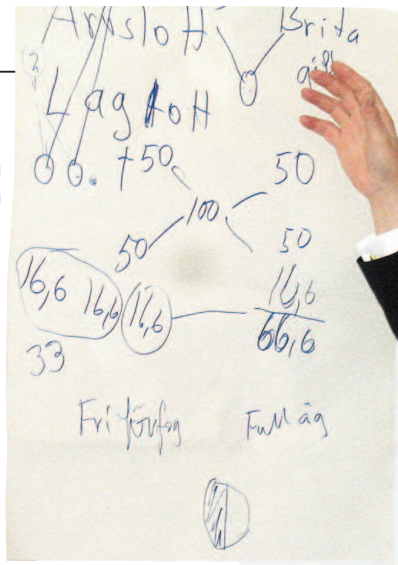 Arvslott Brita
gift
Laglott
+50 50
100
50 50
16,6 16,6 16,6 16,6
33 66,6
Fri förfog Full äg